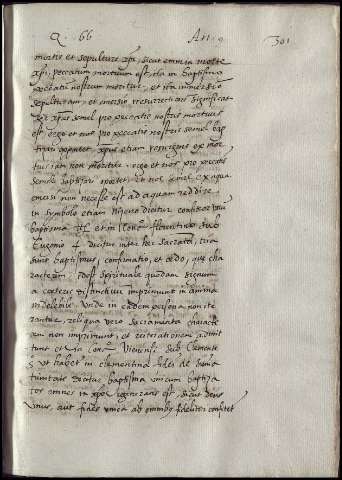 Q. 66 Ar. 9 301
mortis et sepulturæ xpi, sicut enim in morte
xpi, peccatum mortuum est, ita in baptismo
peccatum nostrum moritur, et immersio
sepulturam, et emersio resurrectionem significat
xpus semel pro peccatis nostris mortuus
est, ergo et nos pro peccatis nostris semel bap
tizari oportet, xpus etiam resurgens ex mor
tuis iam non moritur, ergo et nos pro peccatis
semel baptizari oportet, et nos semel ex aqua
emersi non necesse est ad aquam reddire,
in symbolo etiam Niceno dicitur confiteor unum
baptisma et in Conc. florentino sub
Eugenio 4 dicitur inter hec sacramenta, tria
sunt baptismus, confirmatio, et ordo, que cha
racterem, idest spirituale quoddam signum
a cæteris distinctivum imprimunt in anima
indelebile. Unde in eadem persona non ite
rantur, reliqua vero sacramenta characte
rem non imprimunt, et reiterationem admit
tunt et in Conc. Viennensi sub Clemente
5 ut habet in clementina fidei de summa
trinitate dicitur baptisma unicum baptiza
tos omnes in xpo regenerans est, sicut deus
unus, aut fides unica ab omnibus fideliter confitet